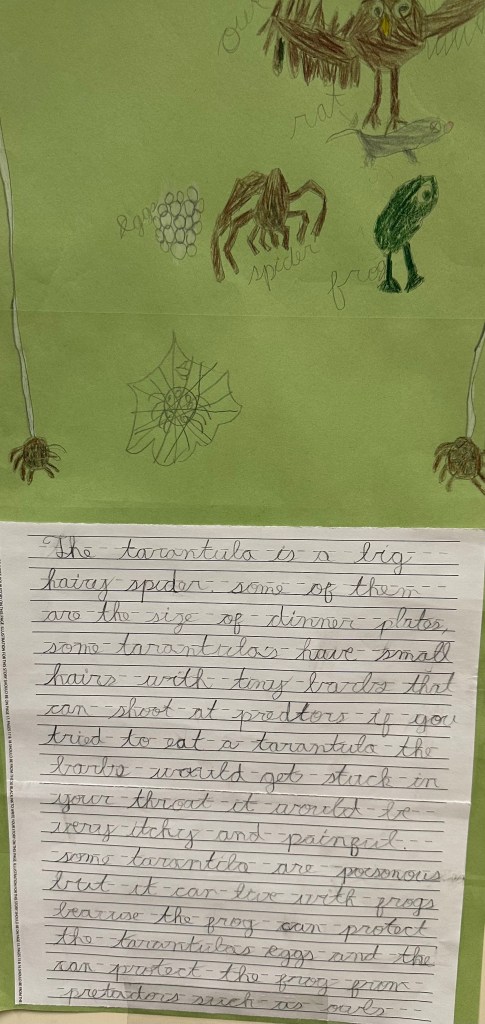 rat
eggs
spider
frog
The tarantula is a big
hairy spider. some of them
are the size of dinner plates,
some tarantulas have small
hairs with tiny barbs that
can shoot at predtors if you
tried to eat a tarantula the
barbs would get stuck in
your throat it would be
very itchy and painful.
some tarantila are poisonous
but it can live with frogs
bearuse the frog can protect
the tarantulas eggs and the
can protect the frog from
pretadors such as owls